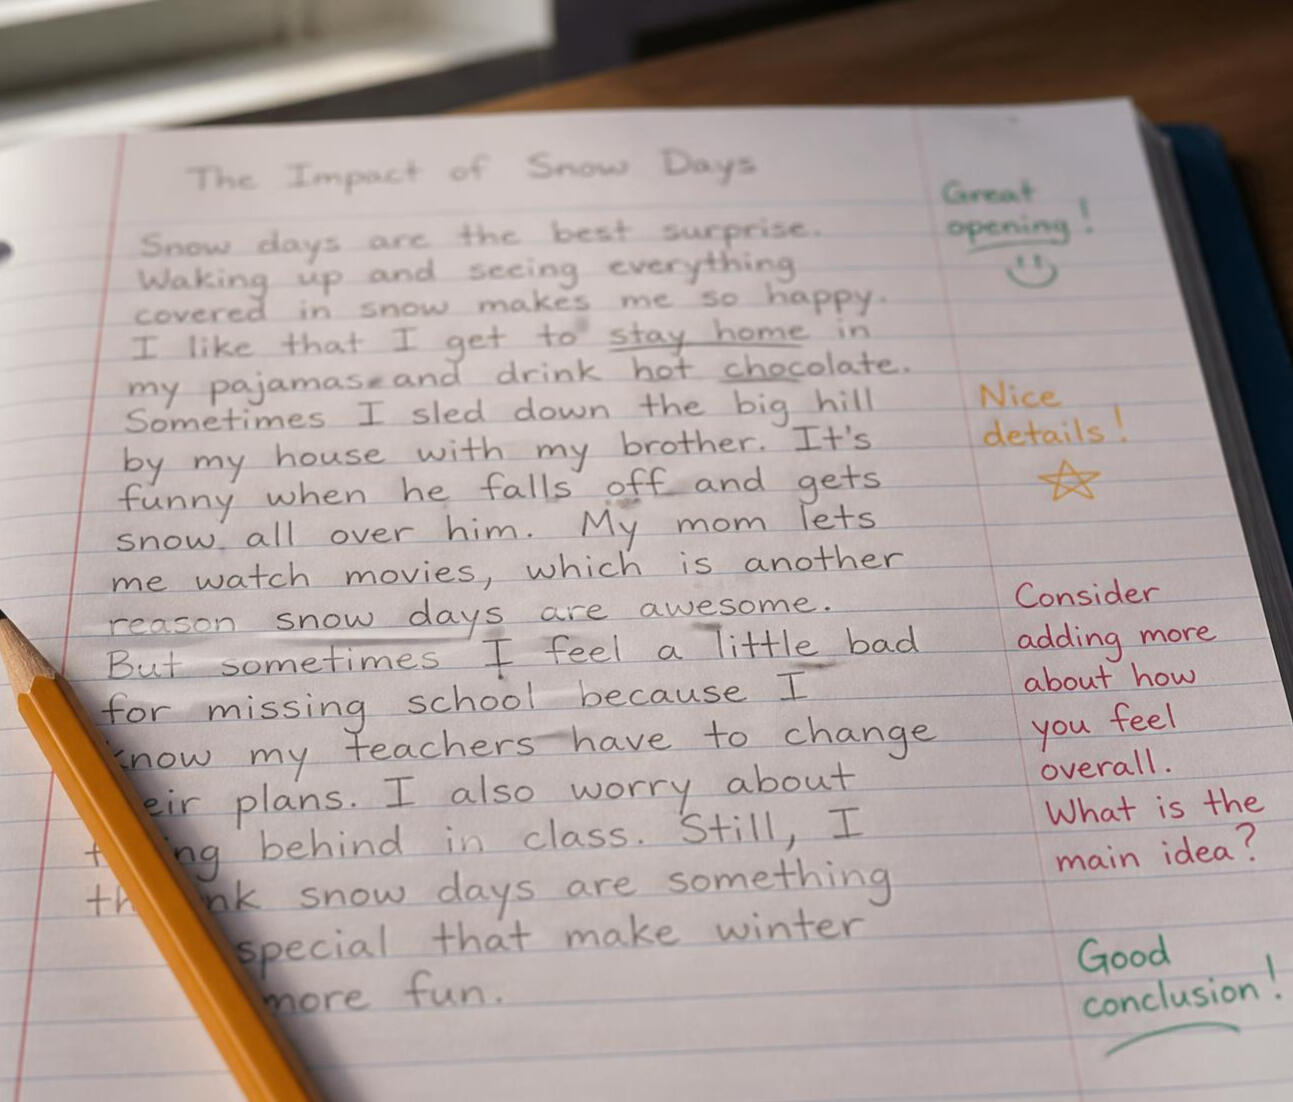 The Impact of Snow Days
Snow days are the best surprise.
Waking up and seeing everything
covered in snow makes me so happy.
I like that I get to stay home in
my pajamas and drink hot chocolate.
Sometimes I sled down the big hill
by my house with my brother. It's
funny when he falls off and gets
snow all over him. My mom lets
me watch movies, which is another
reason snow days are awesome.
But sometimes I feel a little bad
for missing school because I
know my teachers have to change
plans. I also worry about
behind in class. Still, I
snow days are something
special that make winter
more fun.
Great
opening!
Nice
details!
Consider
adding more
about how
you feel
overall.
What is the
main idea?
Good
conclusion!